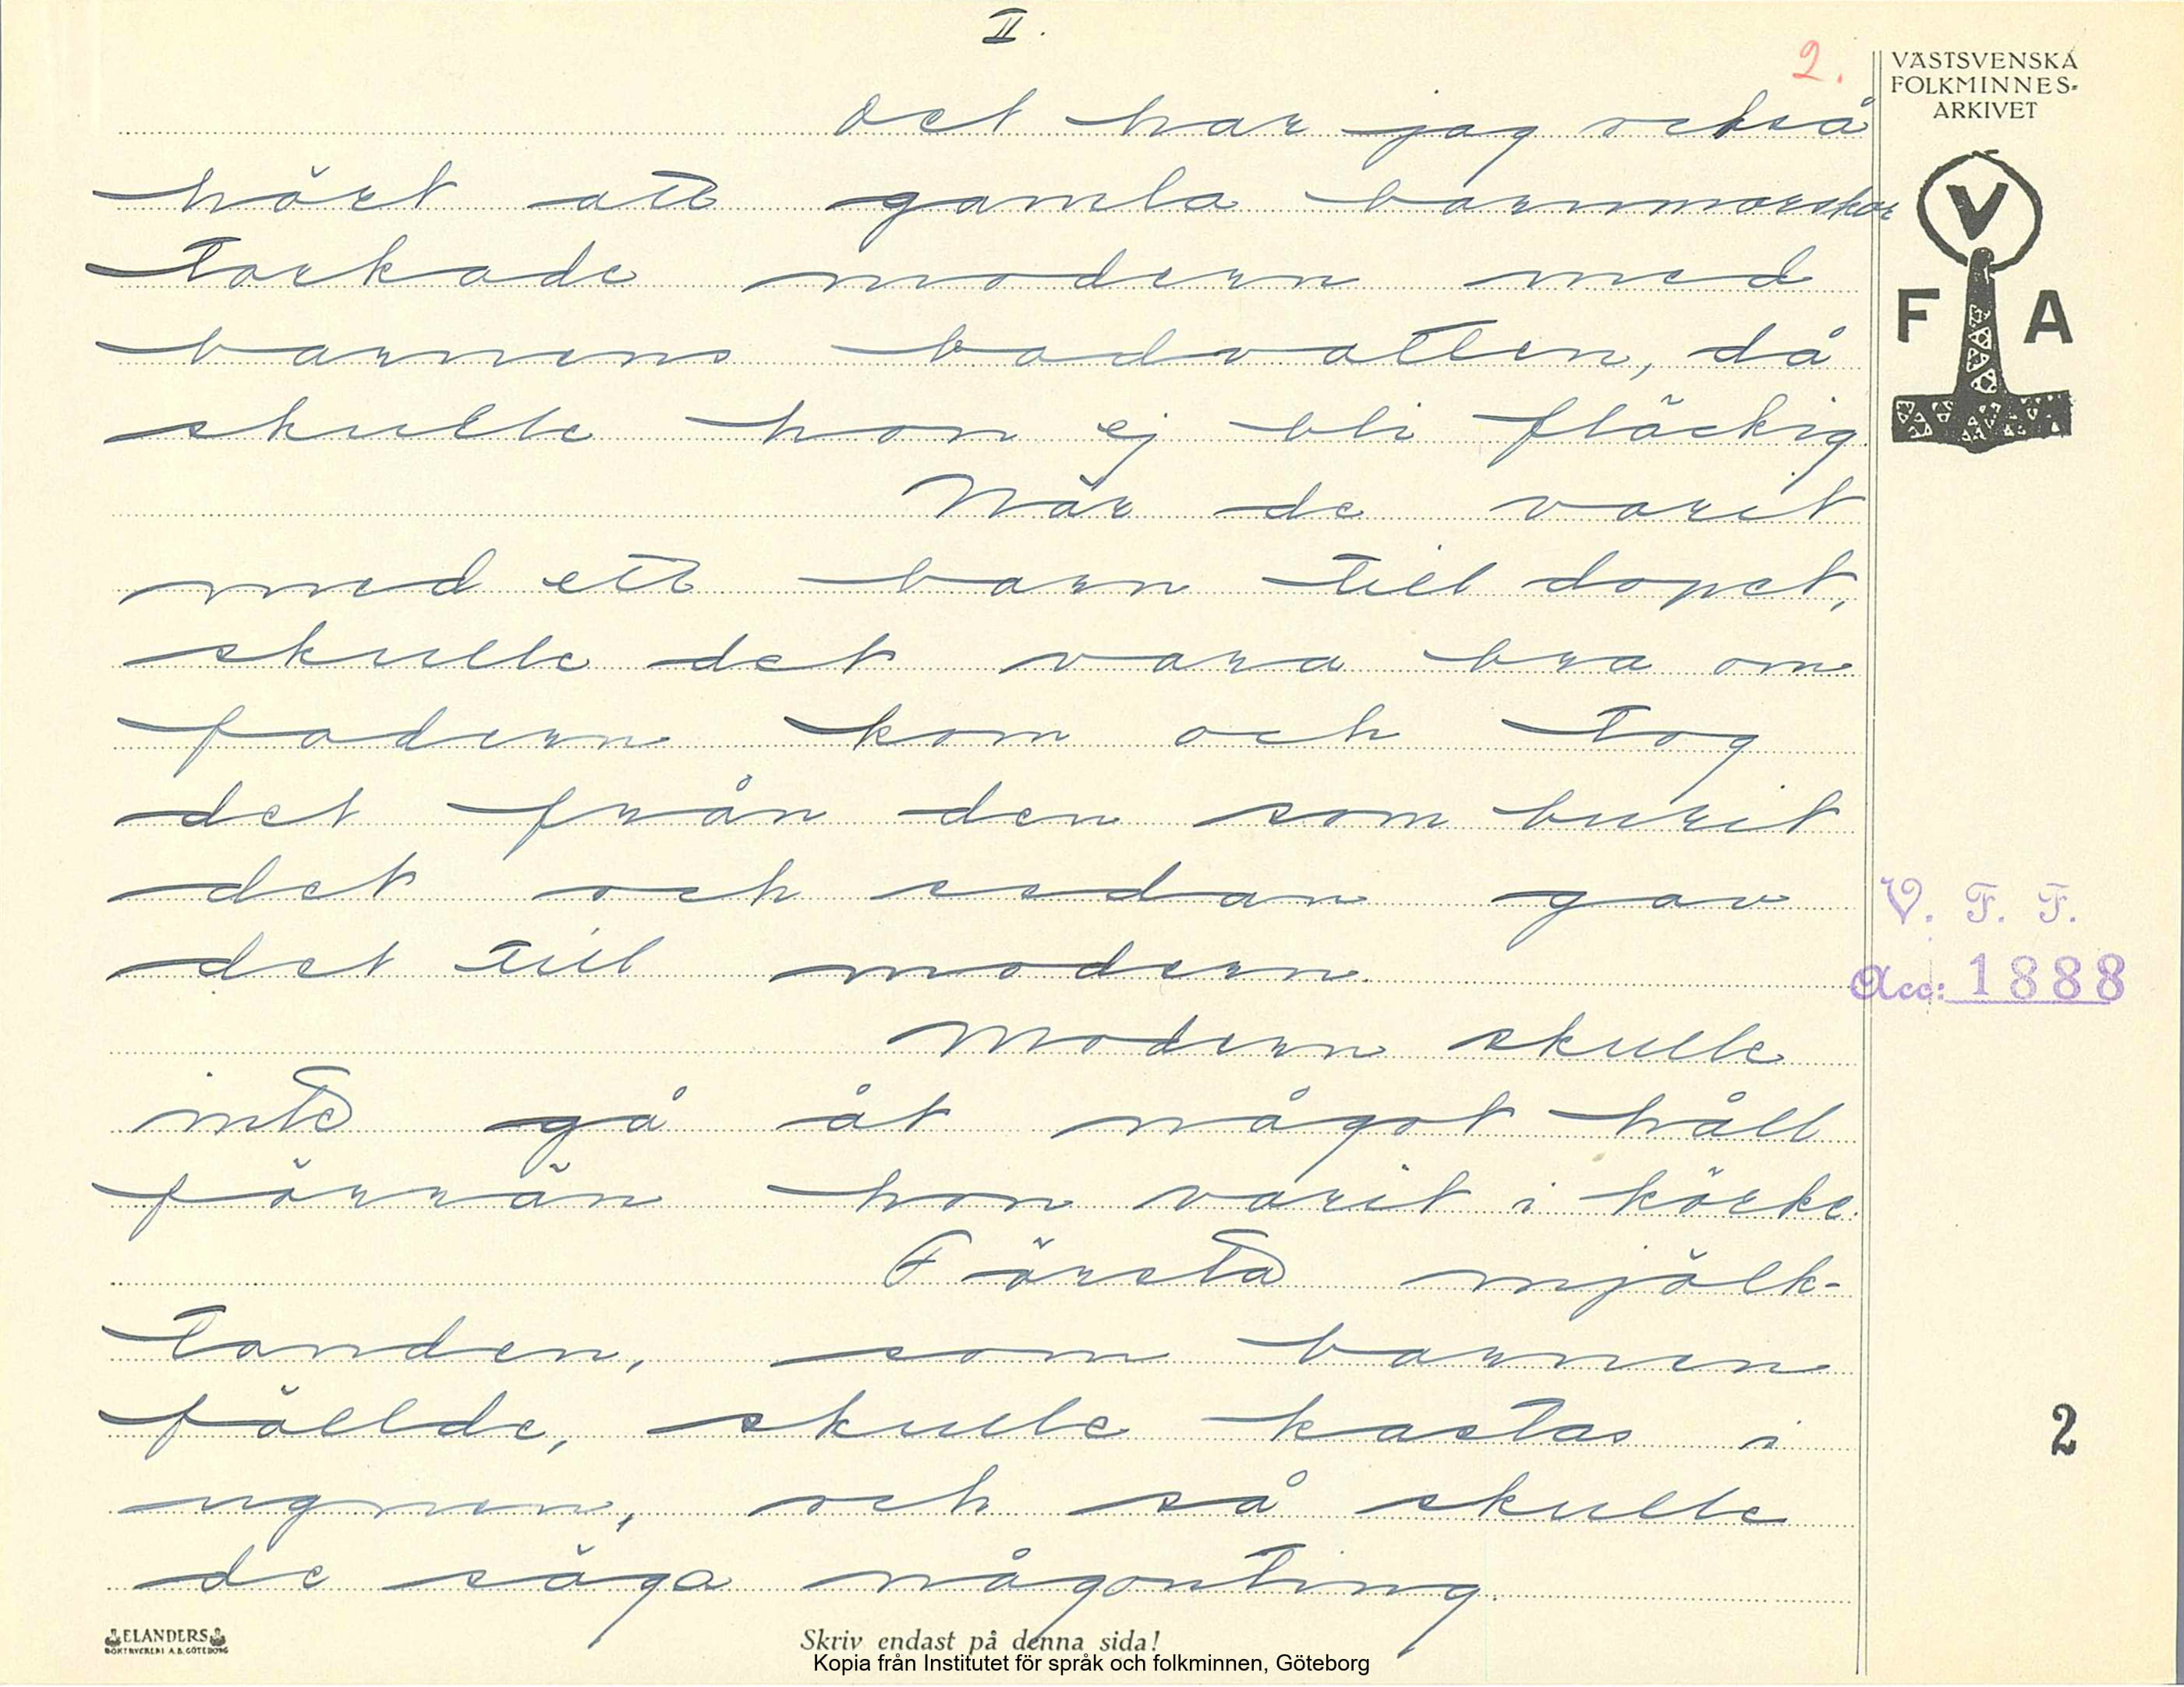 II.
2.
VÄSTSVENSKA
FOLKMINNES-
ARKIVET
V
F A
Det har jag också
hört att gamla barnmorskor
torkade modern med
barnens badvatten, då
skulle hon ej bli fläckig.
När de varit
med ett barn till dopet,
skulle det vara bra om
fadern kom och tog
det från den som burit
det och sedan gav
det till modern.
V. F. F.
Acc: 1888
Modern skulle
inte gå åt något håll
förrän hon varit i körke.
Första mjölk-
tanden, som barnen
fällde, skulle kastas i
ugnen, och så skulle
de säga någonting.
2
ELANDERS
BOKTRYCKERI A.B. GÖTEBORG
Skriv endast på denna sida!
Kopia från Institutet för språk och folkminnen, Göteborg